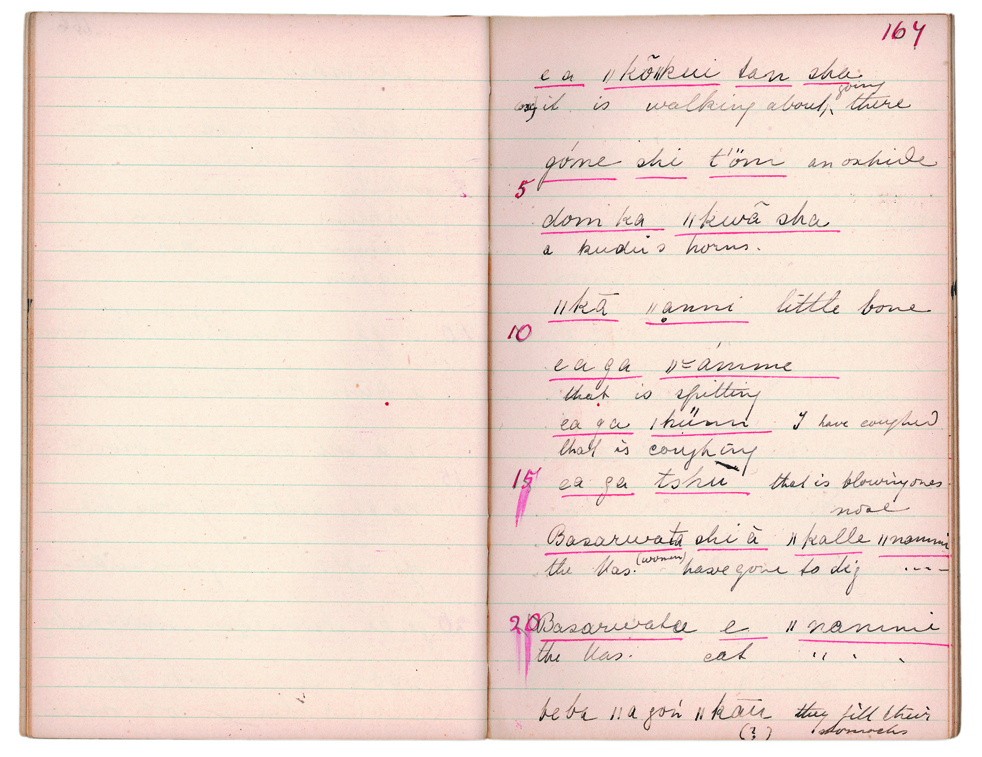 164
e a ǁkõǁkui tan sha
it is walking about, going there
góne shi t'öm an oxhide
5
dom ka ǁkwã sha
a kudu's horns.
ǁkā ǁạnni little bone
10
ea ga ǁ=ámme
that is spitting
ea ga ǀkünn I have coughed
that is coughing
15 ea ga tshù that is blowing ones
nose
Basarwata shi ā ǁkalle ǁnammi
the Vas. (women) have gone to dig ----
20 Basarwata e ǁnammi
the Vas. eat " " "
beba ǁa gon ǁkāū they fill their
(?) stomachs